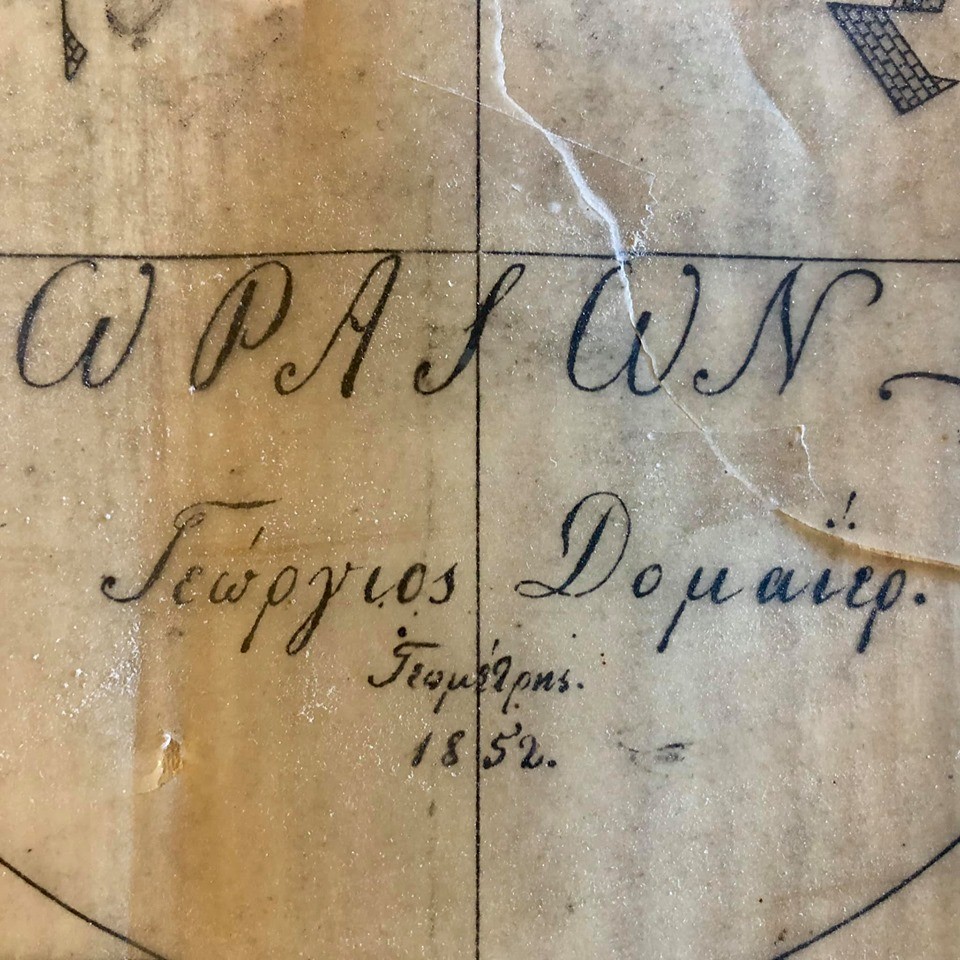 ΩΡΑΙΩΝ
Γεώργιος Δομαϊέρ.
Γεωμέτρης.
1852.